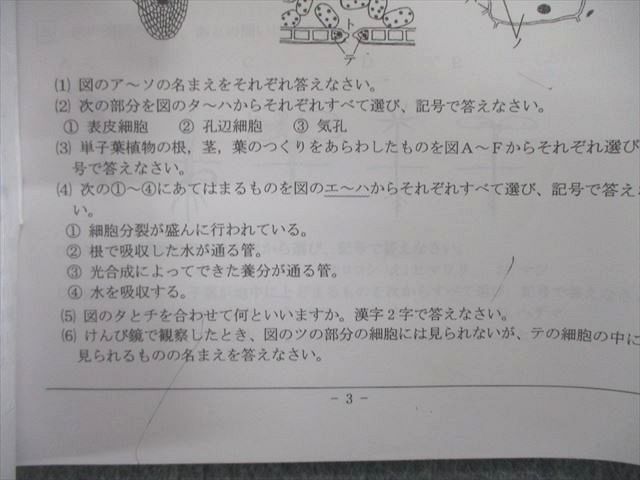 ト
テ
ノ
(1) 図のア～ソの名まえをそれぞれ答えなさい。
(2) 次の部分を図のタ～ハからそれぞれすべて選び、記号で答えなさい。
① 表皮細胞 ② 孔辺細胞 ③ 気孔
(3) 単子葉植物の根，茎，葉のつくりをあらわしたものを図A～Fからそれぞれ選び
号で答えなさい。
(4) 次の①～④にあてはまるものを図のエ～ハからそれぞれすべて選び、記号で答え
い。
① 細胞分裂が盛んに行われている。
② 根で吸収した水が通る管。
③ 光合成によってできた養分が通る管。
④ 水を吸収する。
(5) 図のタとチを合わせて何といいますか。漢字2字で答えなさい。
(6) けんび鏡で観察したとき、図のツの部分の細胞には見られないが、テの細胞の中に
見られるものの名まえを答えなさい。
- 3 -